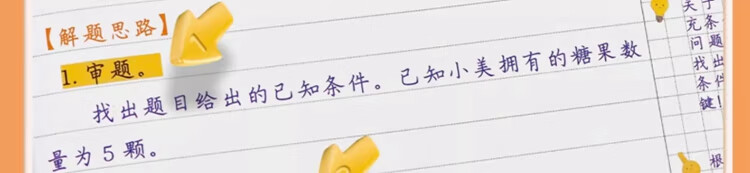 【解题思路】
1. 审题。
找出题目给出的已知条件。已知小美拥有的糖果数
量为 5 颗。
关于
充条
问题
找出
条件
键!
根